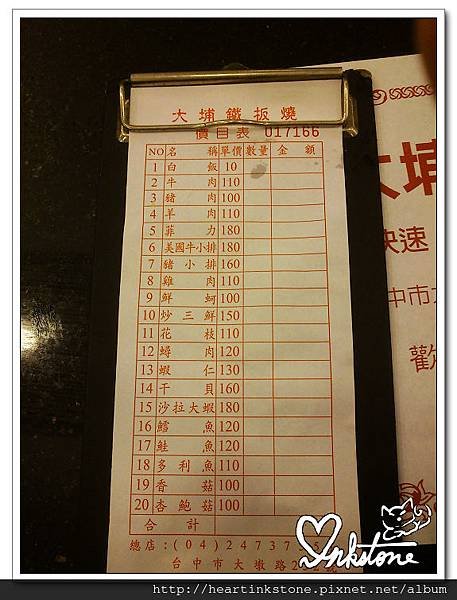 大埔鐵扳燒
價目表 017166
NO 名稱 單價 數量 金額
1 白飯 10
2 牛肉 110
3 豬肉 100
4 羊肉 110
5 菲力 180
6 美國牛小排 180
7 豬小排 160
8 雞肉 110
9 鮮蚵 100
10 炒三鮮 150
11 花枝 110
12 蟳肉 120
13 蝦仁 130
14 干貝 160
15 沙拉大蝦 180
16 鱈魚 120
17 鮭魚 120
18 多利魚 110
19 香菇 100
20 杏鮑菇 100
合計
總店:(04)24737
台中市大墩路
大埔
快速
中市
歡
Inkstone
http://heartinkstone.pixnet.net/album